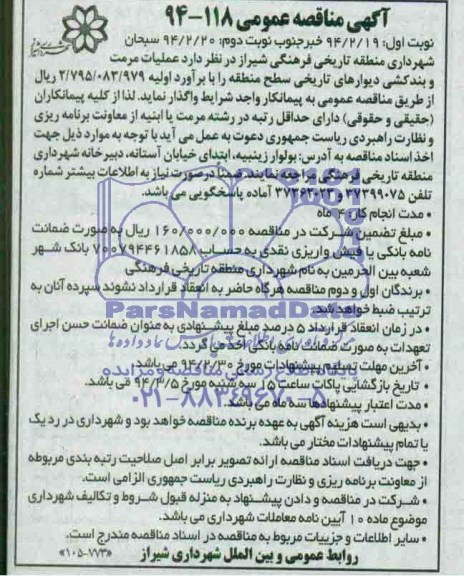 آگهی مناقصه عمومی ۱۱۸-۹۴
نوبت اول: ۹۴/۲/۱۹ خبرجنوب نوبت دوم: ۹۴/۲/۲۰ سبحان
شهرداری منطقه تاریخی فرهنگی شیراز در نظر دارد عملیات مرمت
و بندکشی دیوارهای تاریخی سطح منطقه را با برآورد اولیه ۲/۷۹۵/۰۸۳/۹۷۹ ریال
از طریق مناقصه عمومی به پیمانکار واجد شرایط واگذار نماید. لذا از کلیه پیمانکاران
(حقیقی و حقوقی) دارای حداقل رتبه در رشته مرمت یا ابنیه از معاونت برنامه ریزی
و نظارت راهبردی ریاست جمهوری دعوت به عمل می آید با توجه به موارد ذیل جهت
اخذ اسناد مناقصه به آدرس: بولوار زینبیه، ابتدای خیابان آستانه، دبیرخانه شهرداری
منطقه تاریخی فرهنگی مراجعه نمایند. ضمناً در صورت نیاز به اطلاعات بیشتر شماره
تلفن ۳۷۳۹۹۰۷۵ و ۳۷۳۶۲۰۲۳ آماده پاسخگویی می باشد.
• مدت انجام کار: ۴ ماه
• مبلغ تضمین شرکت در مناقصه ۱۶۰/۰۰۰/۰۰۰ ریال به صورت ضمانت
نامه بانکی یا فیش واریزی نقدی به حساب ۷۰۰۷۹۴۴۶۱۸۵۸ بانک شهر
شعبه بین الحرمین به نام شهرداری منطقه تاریخی فرهنگی
• برندگان اول و دوم مناقصه هرگاه حاضر به انعقاد قرارداد نشوند سپرده آنان به
ترتیب ضبط خواهد شد.
ParsNamadData
• در زمان انعقاد قرارداد ۵ درصد مبلغ پیشنهادی به عنوان ضمانت حسن اجرای
تعهدات به صورت ضمانت نامه بانکی اخذ می گردد.
• آخرین مهلت تسلیم پیشنهادات مورخ ۹۴/۲/۳۰ می باشد.
پایگاه اطلاع رسانی مناقصه و مزایده
• تاریخ بازگشایی پاکات ساعت ۱۵ سه شنبه مورخ ۹۴/۳/۵ می باشد.
۰۲۱-۸۸۳۴۹۶۷۰-۵
• مدت اعتبار پیشنهادها سه ماه می باشد.
• بدیهی است هزینه آگهی به عهده برنده مناقصه خواهد بود و شهرداری در رد یک
یا تمام پیشنهادات مختار می باشد.
• جهت دریافت اسناد مناقصه ارائه تصویر برابر اصل صلاحیت رتبه بندی مربوطه
از معاونت برنامه ریزی و نظارت راهبردی ریاست جمهوری الزامی است.
• شرکت در مناقصه و دادن پیشنهاد به منزله قبول شروط و تکالیف شهرداری
موضوع ماده ۱۰ آیین نامه معاملات شهرداری می باشد.
• سایر اطلاعات و جزییات مربوط به مناقصه در اسناد مناقصه مندرج است.
روابط عمومی و بین الملل شهرداری شیراز
«۱۰۵-۷۷۳»